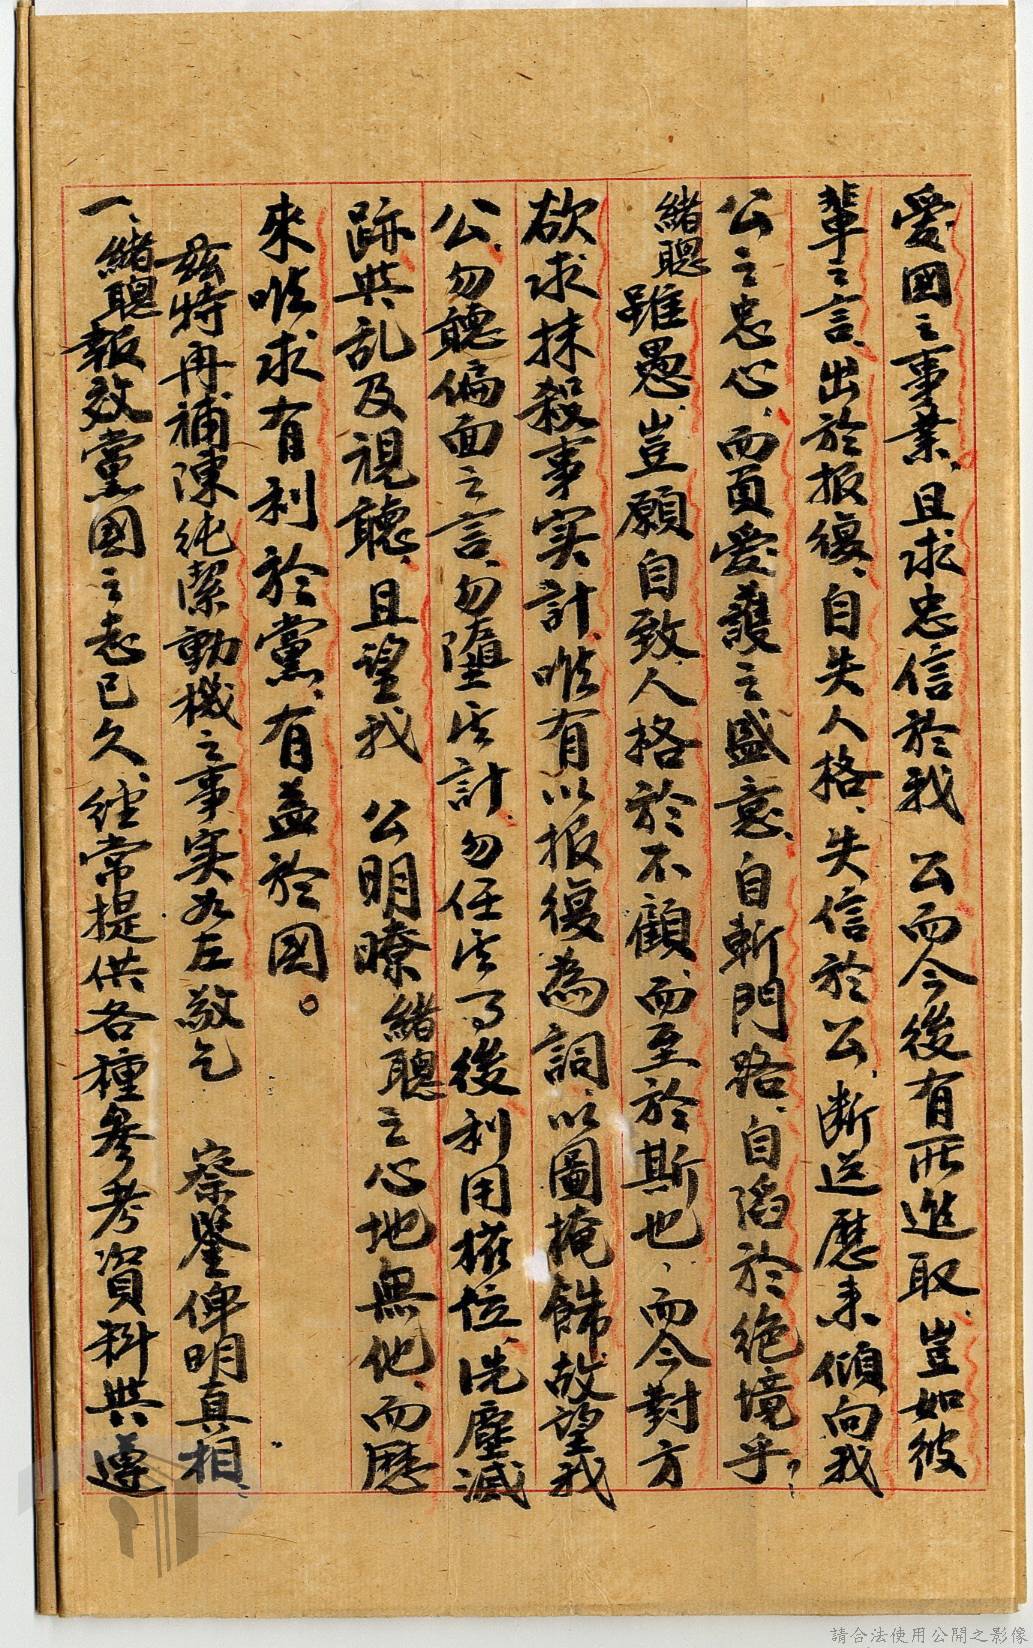 愛國之事業、且求忠信於我　公而今後有所進取、豈如彼
輩之言、出於报復、自失人格、失信於公、断送歷来傾向我
公之忠心、而負愛護之盛意、自斬門路、自陷於絶境乎？
緒聰雖愚、豈願自致人格於不顧、而至於斯也、而今對方
欲求抹殺事实計、唯有以报復為詞、以圖掩飾故望我
公、勿聽偏面之言、勿墮其計、勿任其事後利用權位、洗塵滅
跡與乱及視聽、且望我　公明瞭緒聰之心地無他、而歷
來唯求有利於黨、有益於國。
茲特再補陳純潔動機之事实如左敬乞　察鑒俾明真相、
一、緒聰報效黨國之志已久、經常提供各種參考資料與遵
請合法使用公開之影像